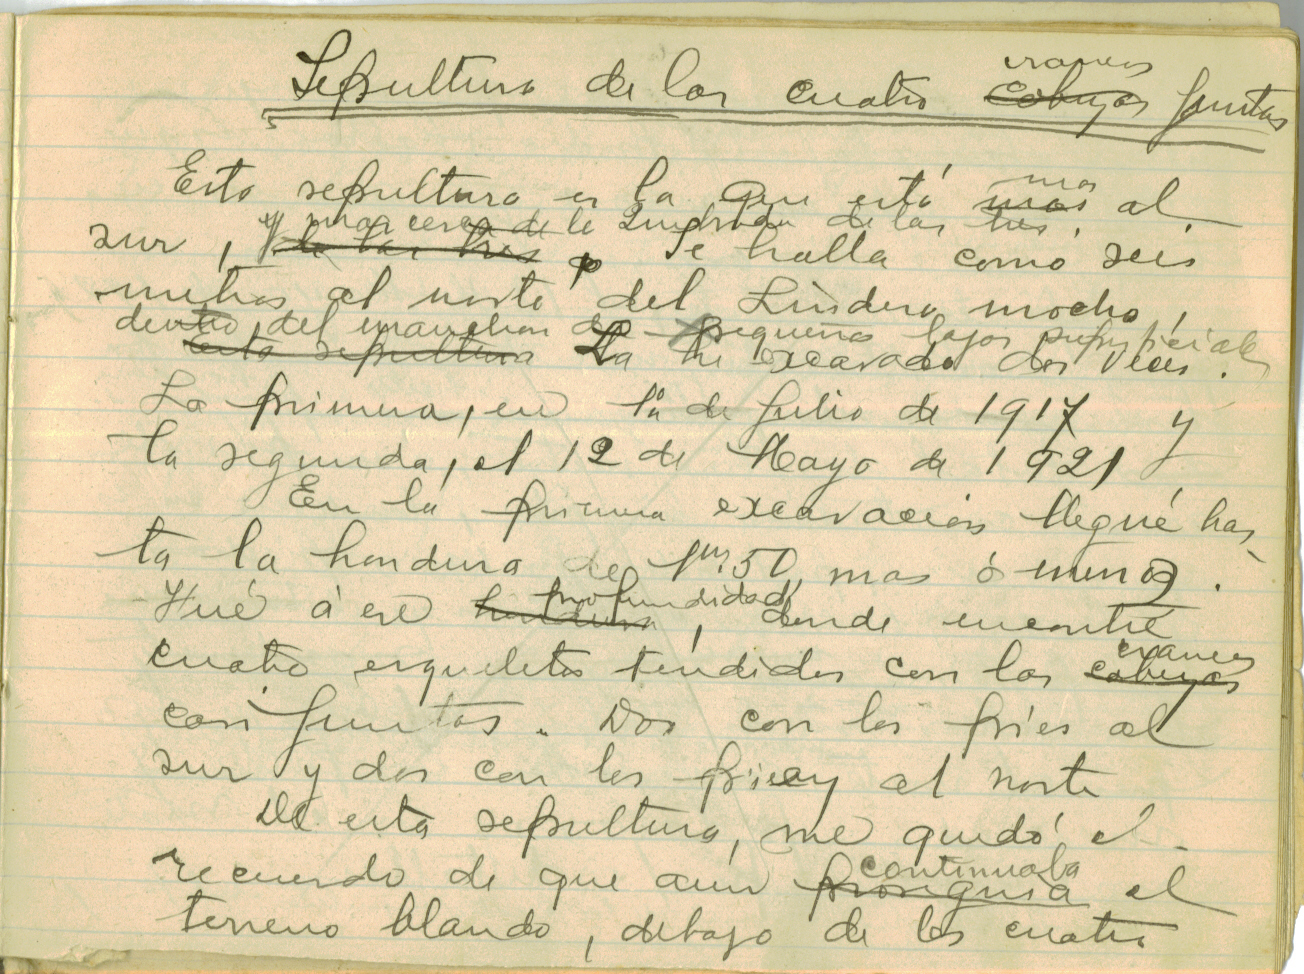 craneos
Sepultura de los cuatro cabezas juntas
Esta sepultura es la que está mas mas al
y mas cerca de la Quebrada de las tres.
sur, y de las tres Se halla como seis
metros al norte del Lindero mocho,
dentro del manchon de pequeñas lajas superficiales
Esta sepultura La he excavado dos veces.
La primera, en 1º de Julio de 1917 y
la segunda, el 12 de Mayo de 1921
En la primera excavación llegué has-
ta la hondura de 1m.50, mas ó menos.
profundidad
Fué á esa hondura, donde encontré
craneos
cuatro esqueletos tendidos con los cabezas
casi juntas. Dos con los pies al
sur y dos con los pies al norte
De esta sepultura, me quedó el
continuaba
recuerdo de que aun proseguia el
terreno blando, debajo de los cuatro